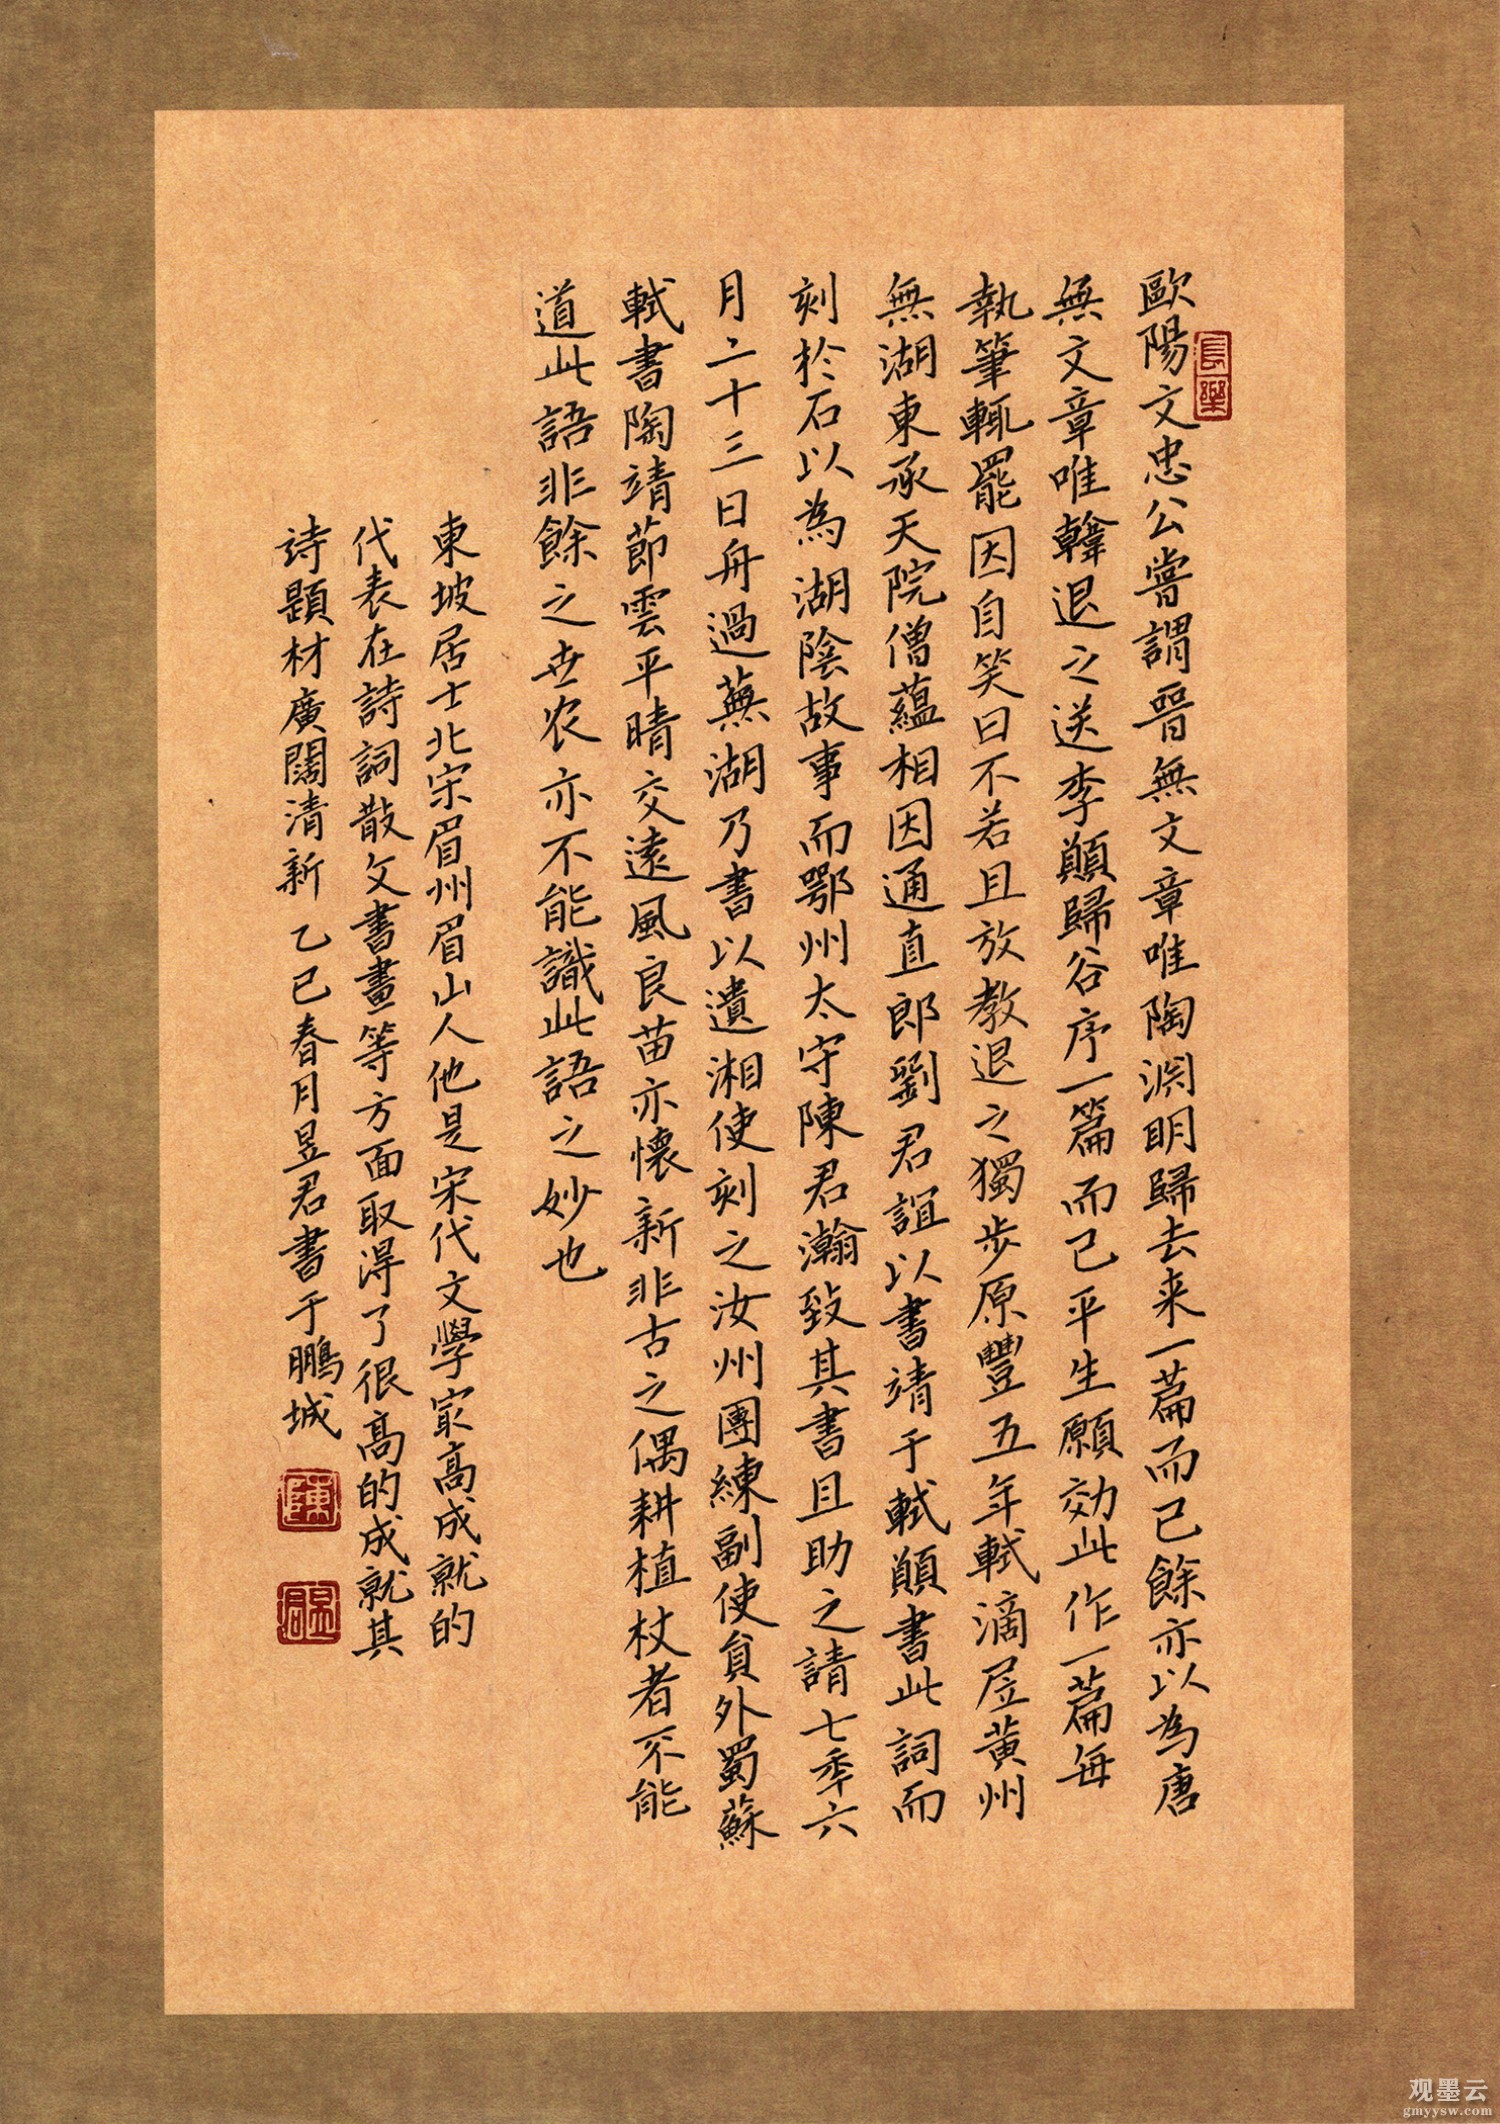 歐陽文忠公嘗謂晉無文章唯陶淵明歸去来一篇而已餘亦以為唐
無文章唯韓退之送李顛歸谷序一篇而已平生願効此作一篇每
執筆輒罷因自笑曰不若且放教退之獨步原豐五年軾滴居黄州
無湖東承天院僧蘊相因通直郎劉君誼以書靖于軾顛書此詞而
刻於石以為湖陰故事而鄂州太守陳君瀚致其書且助之請七年六
月二十三日舟過蕪湖乃書以遺湘使刻之汝州團練副使貟外蜀蘇
軾書陶靖節雲平晴交遠風良苗亦懷新非古之偶耕植杖者不能
道此語非餘之世农亦不能識此語之妙也
東坡居士北宋眉州眉山人他是宋代文學冣高成就的
代表在詩詞散文書畫等方面取得了很高的成就其
詩題材廣闊清新 乙巳春月昱君書于鵬城
長樂
陳
昱君
观墨云
gmyysw.com